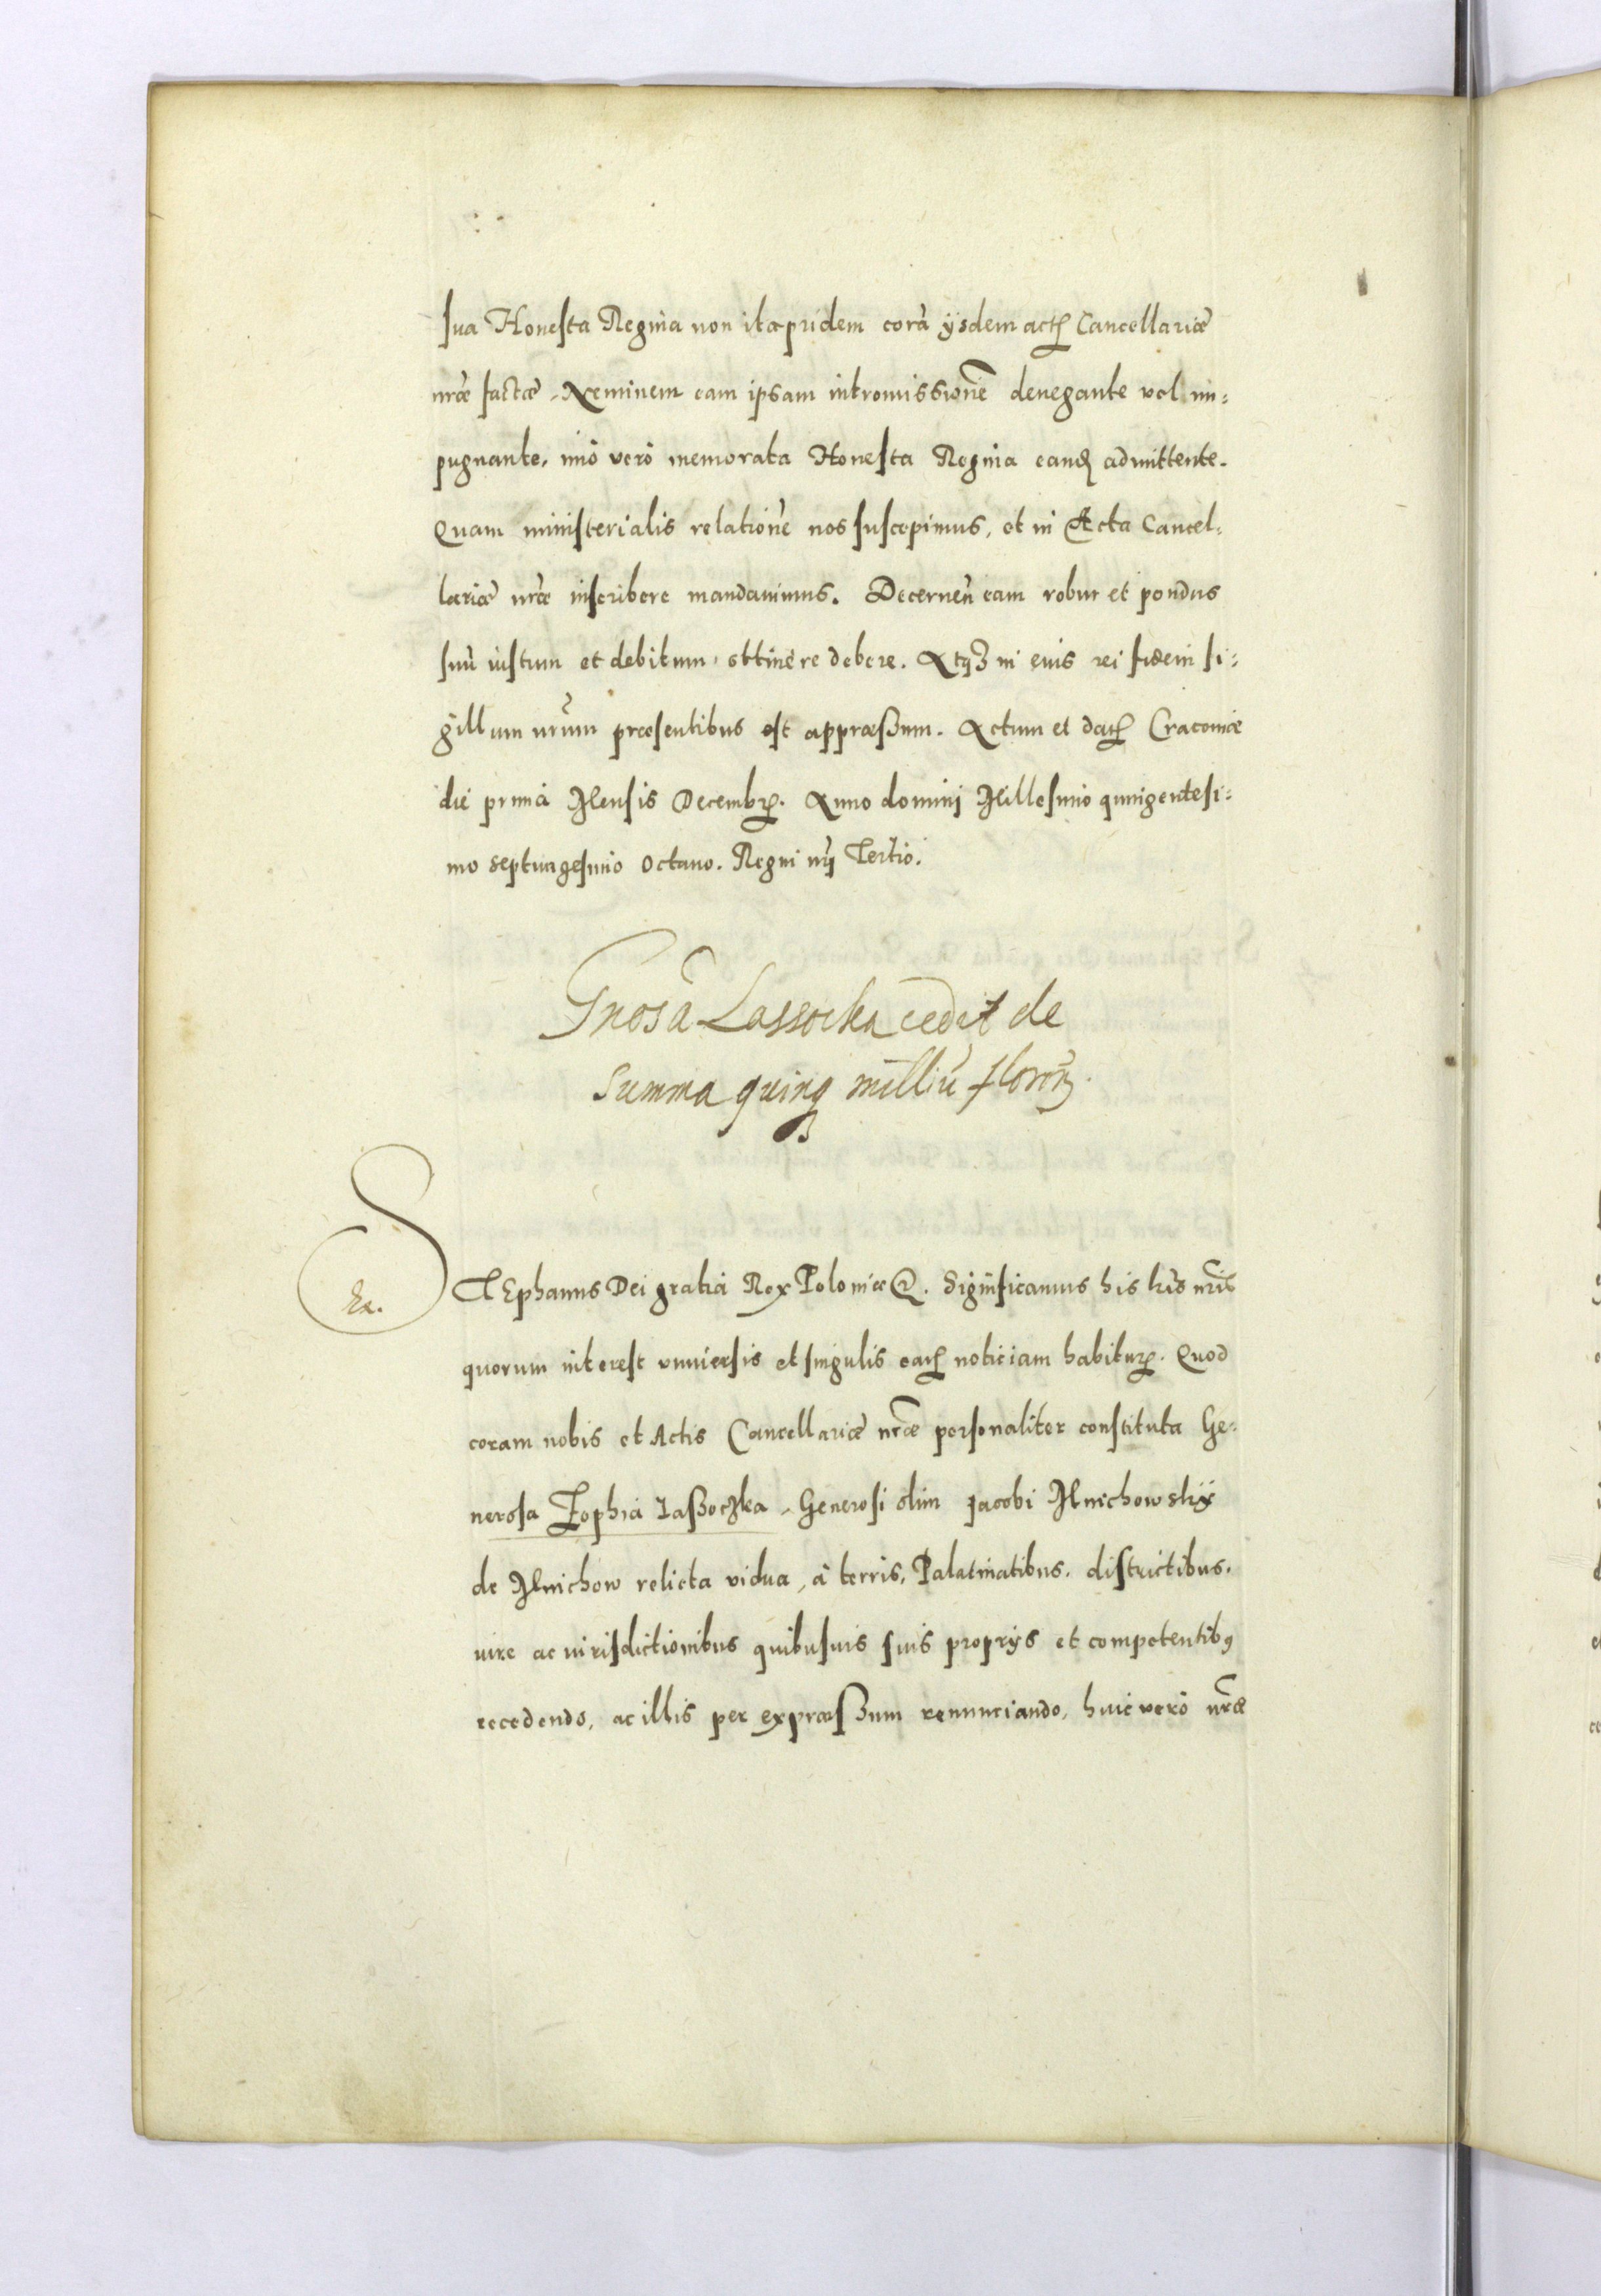 sua Honesta Regina non ita pridem corā ijsdem actis Cancellariæ
nr̃æ factæ, Neminem eam ipsam intromissionẽ denegante vel im=
pugnante, imò verò memorata Honesta Regina eandẽ admittente.
Quam ministerialis relationẽ nos suscepimus, et in Acta Cancel=
lariæ nr̃æ inscribere mandauimus. Decernen̄ eam robur et pondus
suū iustum et debitum obtinere debere. Atqȝ in eius rei fidem si=
gillum nr̃um præsentibus est appræßum. Actum et datȝ Cracouiæ
die prima Mensis Decembrȝ. Anno dominj Millesimo quingentesi=
mo septuagesimo octauo. Regni nr̃j Tertio.
Gnosā Lassocka cedit de
summa quinqȝ milliū floren̄.
STEphanus Dei gratia Rex Poloniæ &. Significamus his lr̃is nr̃is
Ex.
quorum interest vniuersis et singulis earȝ noticiam habiturȝ. Quod
coram nobis et Actis Cancellariæ nr̃æ personaliter constituta Ge=
nerosa Zophia Laßoczka, Generosi olim Jacobi Mnichowskij
de Mnichow relicta vidua, à terris, Palatinatibus, districtibus,
iure ac iurisdictionibus quibusuis suis proprijs et competentibꝫ
recedendo, ac illis per expræßum renunciando, huic verò nr̃æ